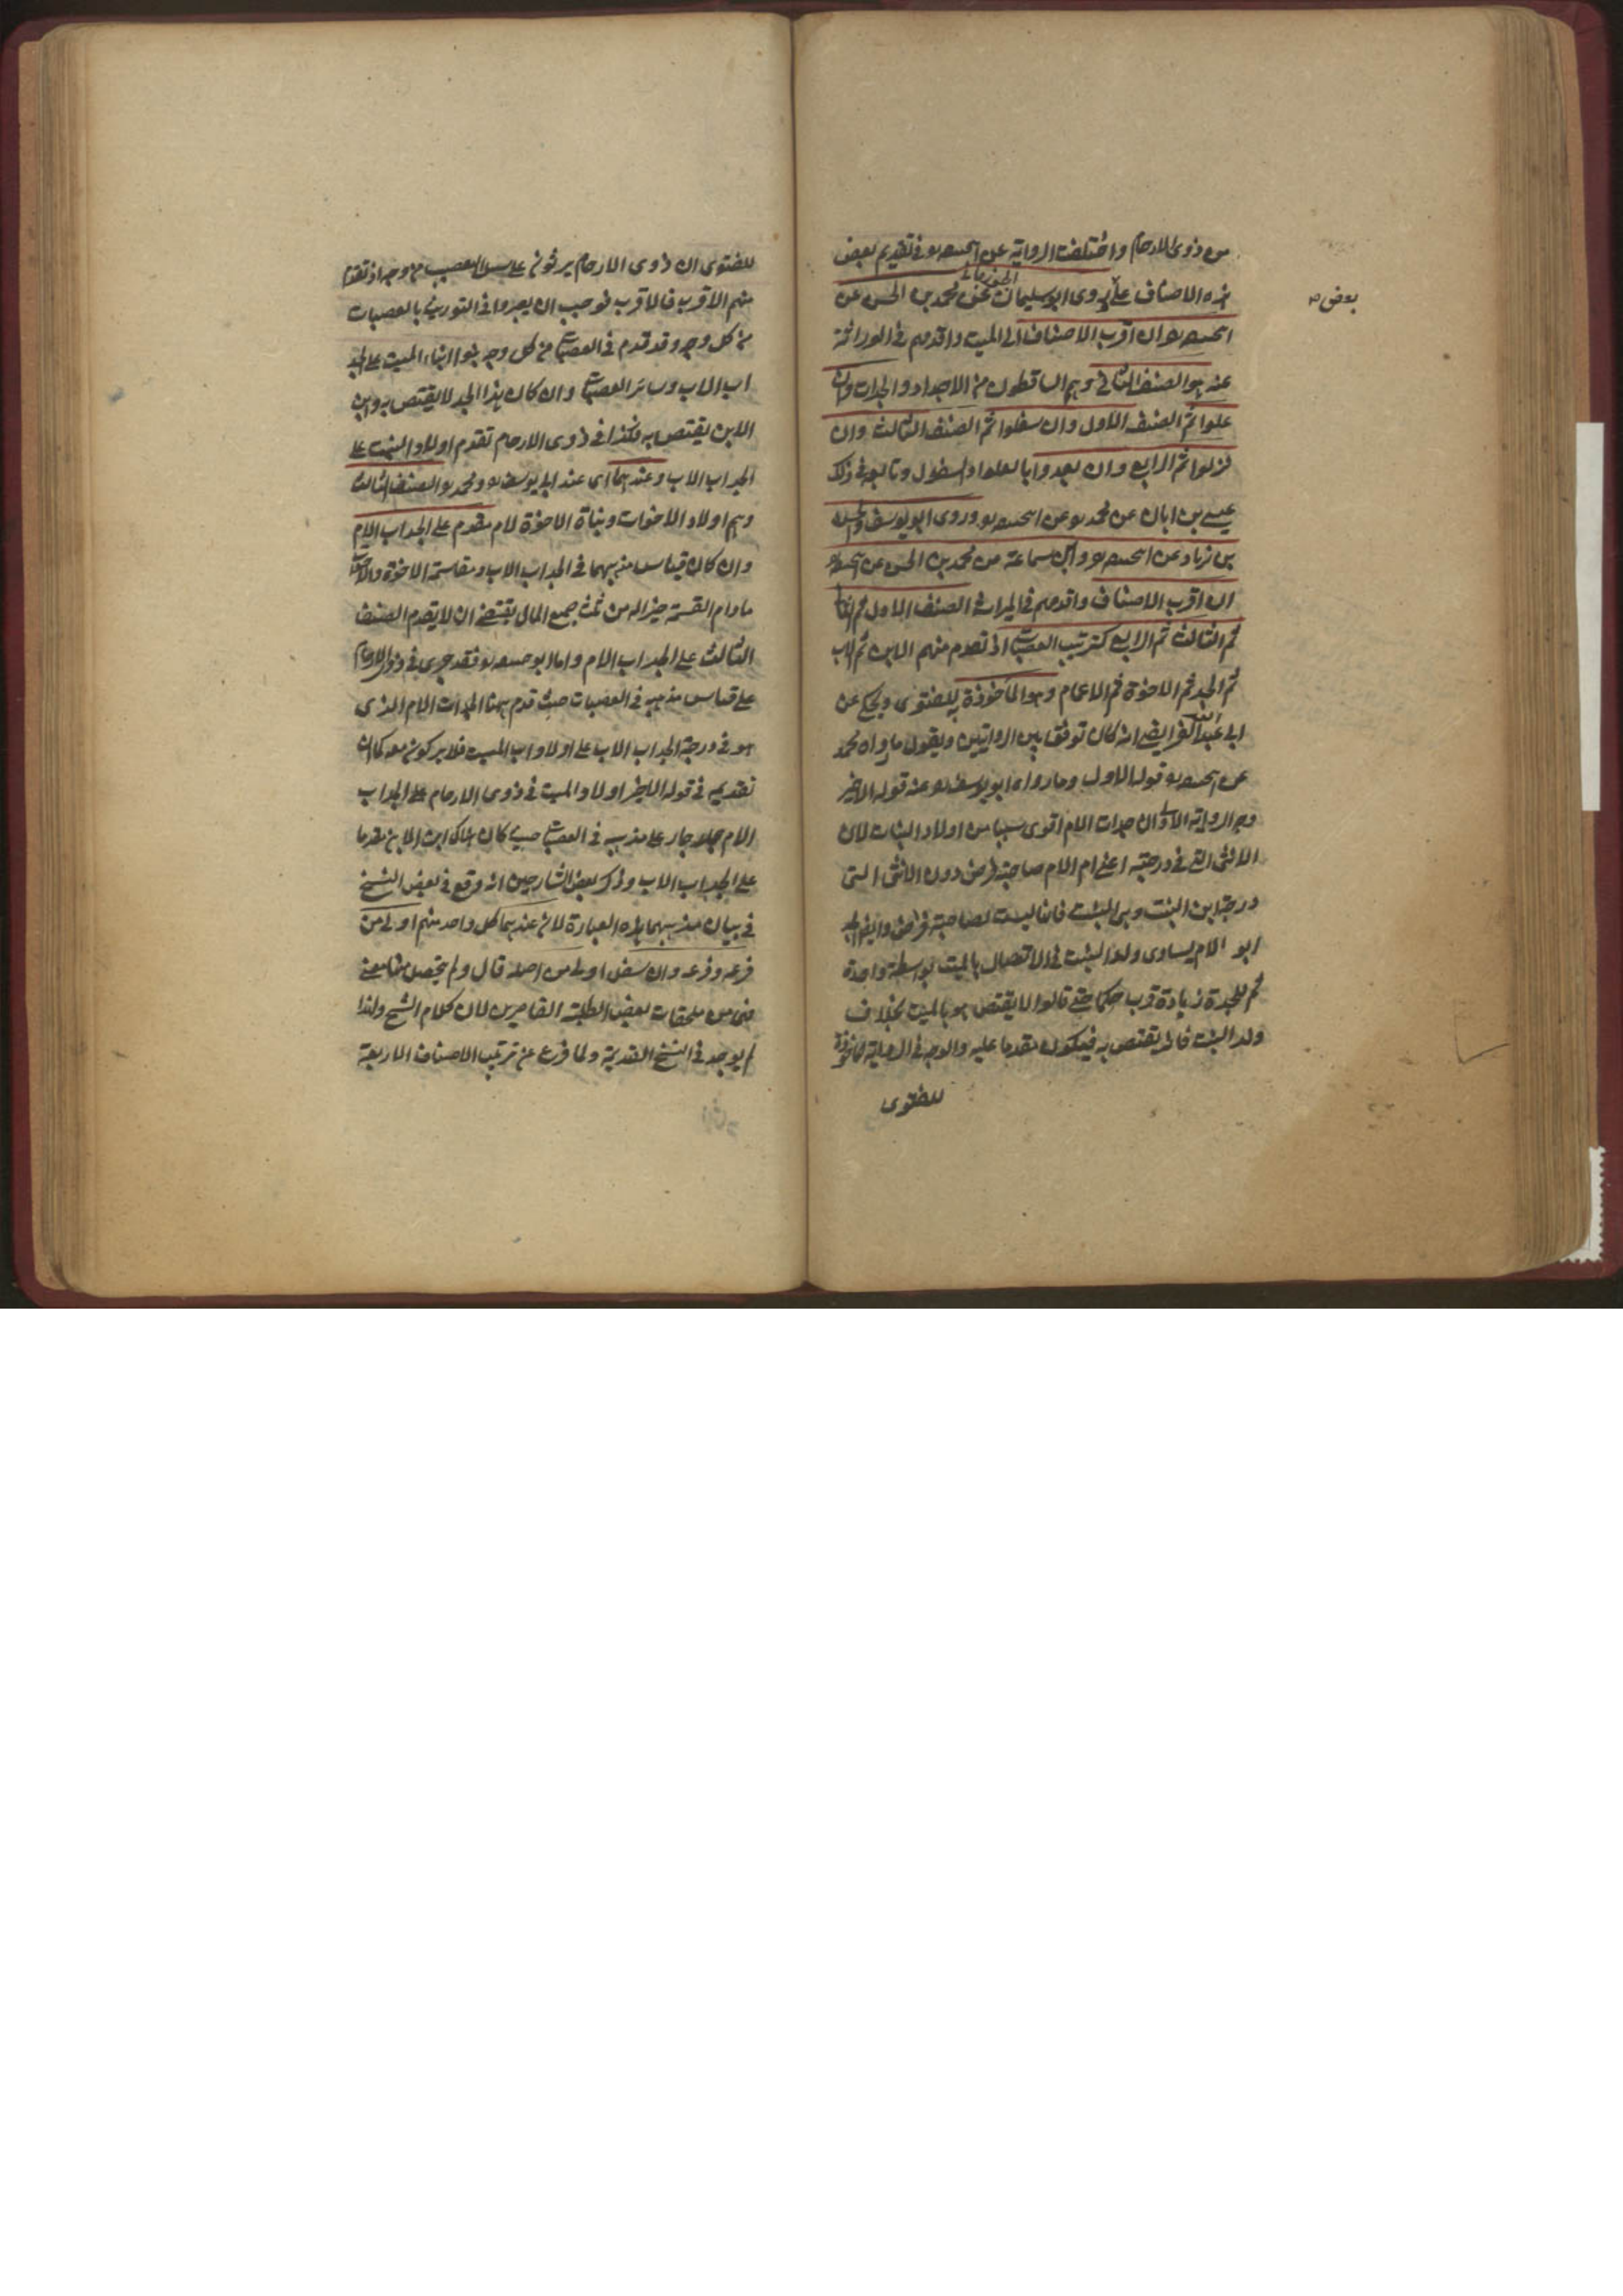 من ذوى الارحام واختلفت الرواية عن ابحـ‍ـنيفة فى تقديم بعض
هذه الاصناف على روى ابو سليمان عن محمد بن الحسن عن
الجوزجانى
بعض
ان اقرب الاصناف الى الميت واقدمهم فى الوراثة
عنه هو الصنف الثانى وهم الساقطون من الاجداد والجدات وان
علوا ثم الصنف الاول وان سفلوا ثم الصنف الثالث وان
نزلوا ثم الرابع وان بعدوا بالعلو او السفول وتابعه فى ذلك
عيسى بن ابان عن محمد عن وروى ابو يوسف والحسن
بن زياد عن وابن سماعة من محمد بن الحسن عن
ان اقرب الاصناف واقدمهم فى الميراث الصنف الاول ثم الثانى
ثم الثالث ثم الرابع كترتيب العصبات اذ تقدم منهم الابن ثم الاب
ثم الجد ثم الاخوة ثم الاعمام وهو الماخوذة به للفتوى وحكى عن
ابى عبد الله الفرايضى انه كان توفق بين الروايتين ويقول ما رواه محمد
عن قوله الاول وما رواه ابو يوسف عنه قوله الاخير
وجه الرواية الاولى ان جدات الام اقوى سببا من اولاد البنات لان
الانثى التى فى درجته اعنى ام الام صاحبة فرض دون الانثى التى
درجة ابن البنت وهى البنت فانها ليست لصاحبة فرض وايضا
ابو الام يساوى ولد البنت فى الاتصال بالميت بواسطة واحدة
ثم للجدة زيادة قرب حكما حتى قالوا لا يقتص هو بالميت بخلاف
ولد البنت فانه يقتص به فيكون مقدما عليه والوجه فى الرواية الماخوذة
للفتوى
للفتوى ان ذوى الارحام يرثون على سبيل التعصيب من وجه اذ تقدم
منهم الاقرب فالاقرب فوجب ان يعبروا فى التوريث بالعصبات
من كل وجه وقد قدم فى العصبات من كل وجه بنوا ابناء الميت على الجد
اب الاب وسائر العصبات وان كان هذا الجد لا يقتص به وابن
الابن يقتص به فكذا فى ذوى الارحام تقدم اولاد البنت على
الجد اب الاب وعندهما اى عند ابى يوسف ومحمد الصنف الثالث
وهم اولاد الاخوات وبناة الاخوة لام مقدم على الجد اب الام
وان كان قياس مذهبهما فى الجد اب الاب ومقاسمة الاخوة والاخوات
مادام القسمة خير اله من ثلث جميع المال يقتضى ان لا يقدم الصنف
الثالث على الجد اب الام واما ابو فقد جرى فى ذوى الارحام
على قياس مذهبه فى العصبات حيث قدم ههنا الجدات الام الذى
هو فى درجة الجد اب الاب على اولاد اب الميت
تقديمه فى قوله الاخير اولاد الميت فى ذوى الارحام على الجد اب
الام جار على مذهبه فى العصبات حيث كان هناك ابن الابن مقدما
على الجد اب الاب وذكر بعض الشارحين انه وقع فى بعض النسخ
فى بيان مذهبهما هذه العبارة لان عندهما كل واحد منهم اولى من
فرعه وفرعه وان سفل اولى من اصله قال ولم يتحصل منها معنى
فهى من ملحقات بعض الطلبة القاصرين لان كلام الشيخ ولذا
لم يوجد فى النسخ القديمة ولما فرغ عن ترتيب الاصناف الاربعة